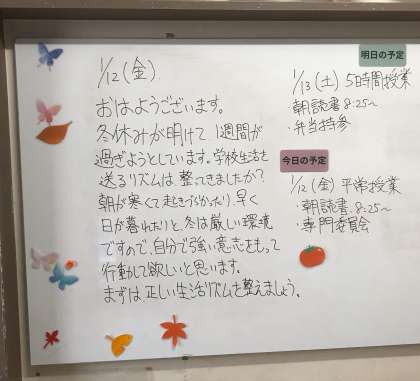 1/12(金)
おはようございます。
冬休みが明けて1週間が
過ぎようとしています。学校生活を
送るリズムは整ってきましたか?
朝が寒くて起きづらかったり、早く
日が暮れたりと、冬は厳しい環境
ですので、自分で強い意志をもって
行動して欲しいと思います。
まずは、正しい生活リズムを整えましょう。
明日の予定
1/13(土) 5時間授業
朝読書 8:25~
・弁当持参
今日の予定
1/12(金) 平常授業
・朝読書 8:25~
・専門委員会